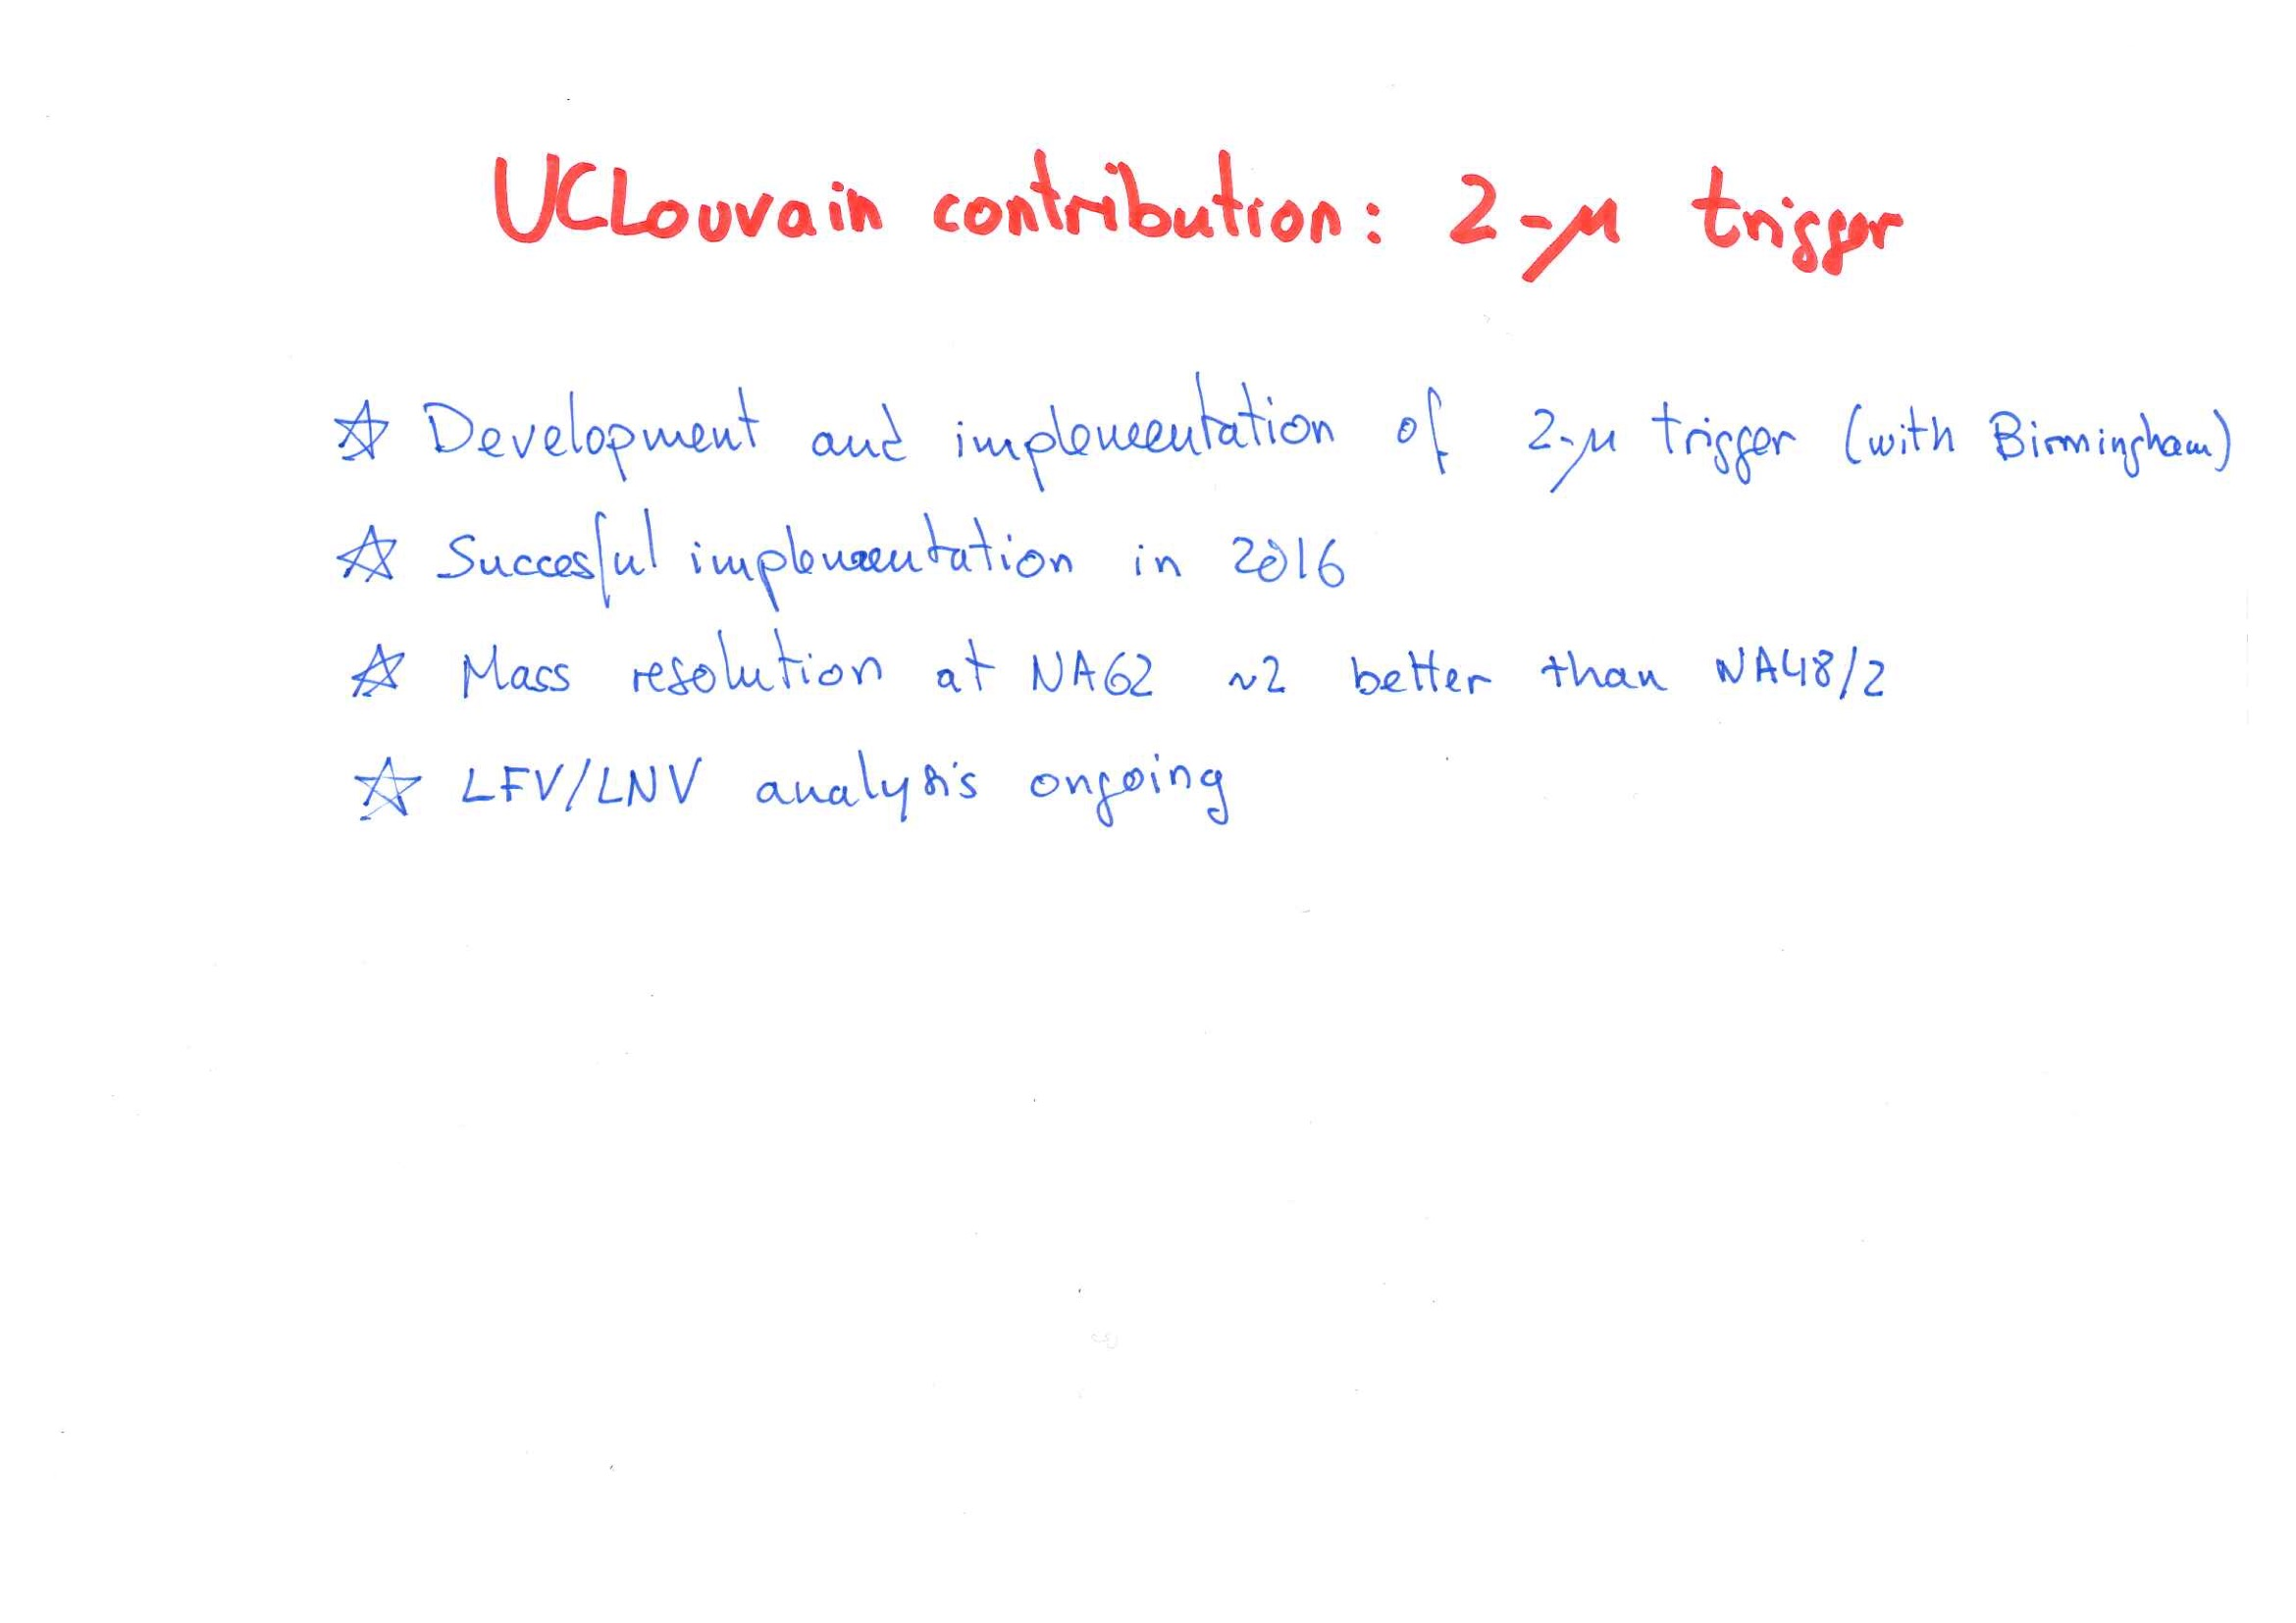 UCLouvain contribution: 2-μ trigger
☆ Development and implementation of 2-μ trigger (with Birmingham)
☆ Succesful implementation in 2016
☆ Mass resolution at NA62 ~2 better than NA48/2
☆ LFV/LNV analysis ongoing